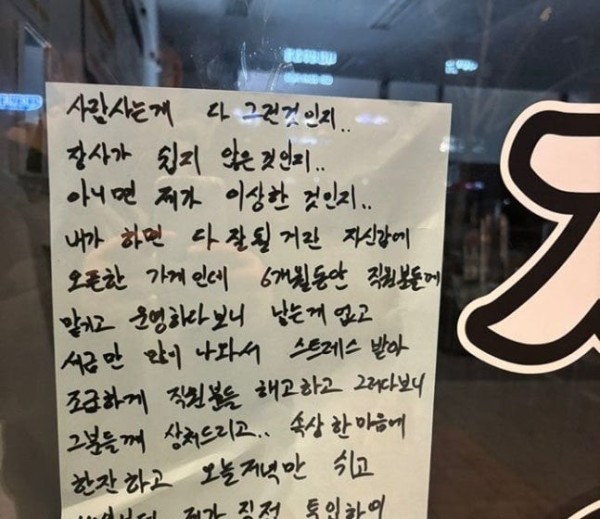 사람사는게 다 그런것인지..
장사가 쉽지 않은것인지..
아니면 제가 이상한 것인지..
내가 하면 다 잘될거란 자신감에
오픈한 가게인데 6개월동안 직원분들에
맡기고 운영하다보니 남는게 없고
세금만 많이 나와서 스트레스 받아
조급하게 직원분들 해고하고 그러다보니
그분들께 상처드리고.. 속상한마음에
한잔하고 오늘저녁만 쉬고
제가 직접 투입하여